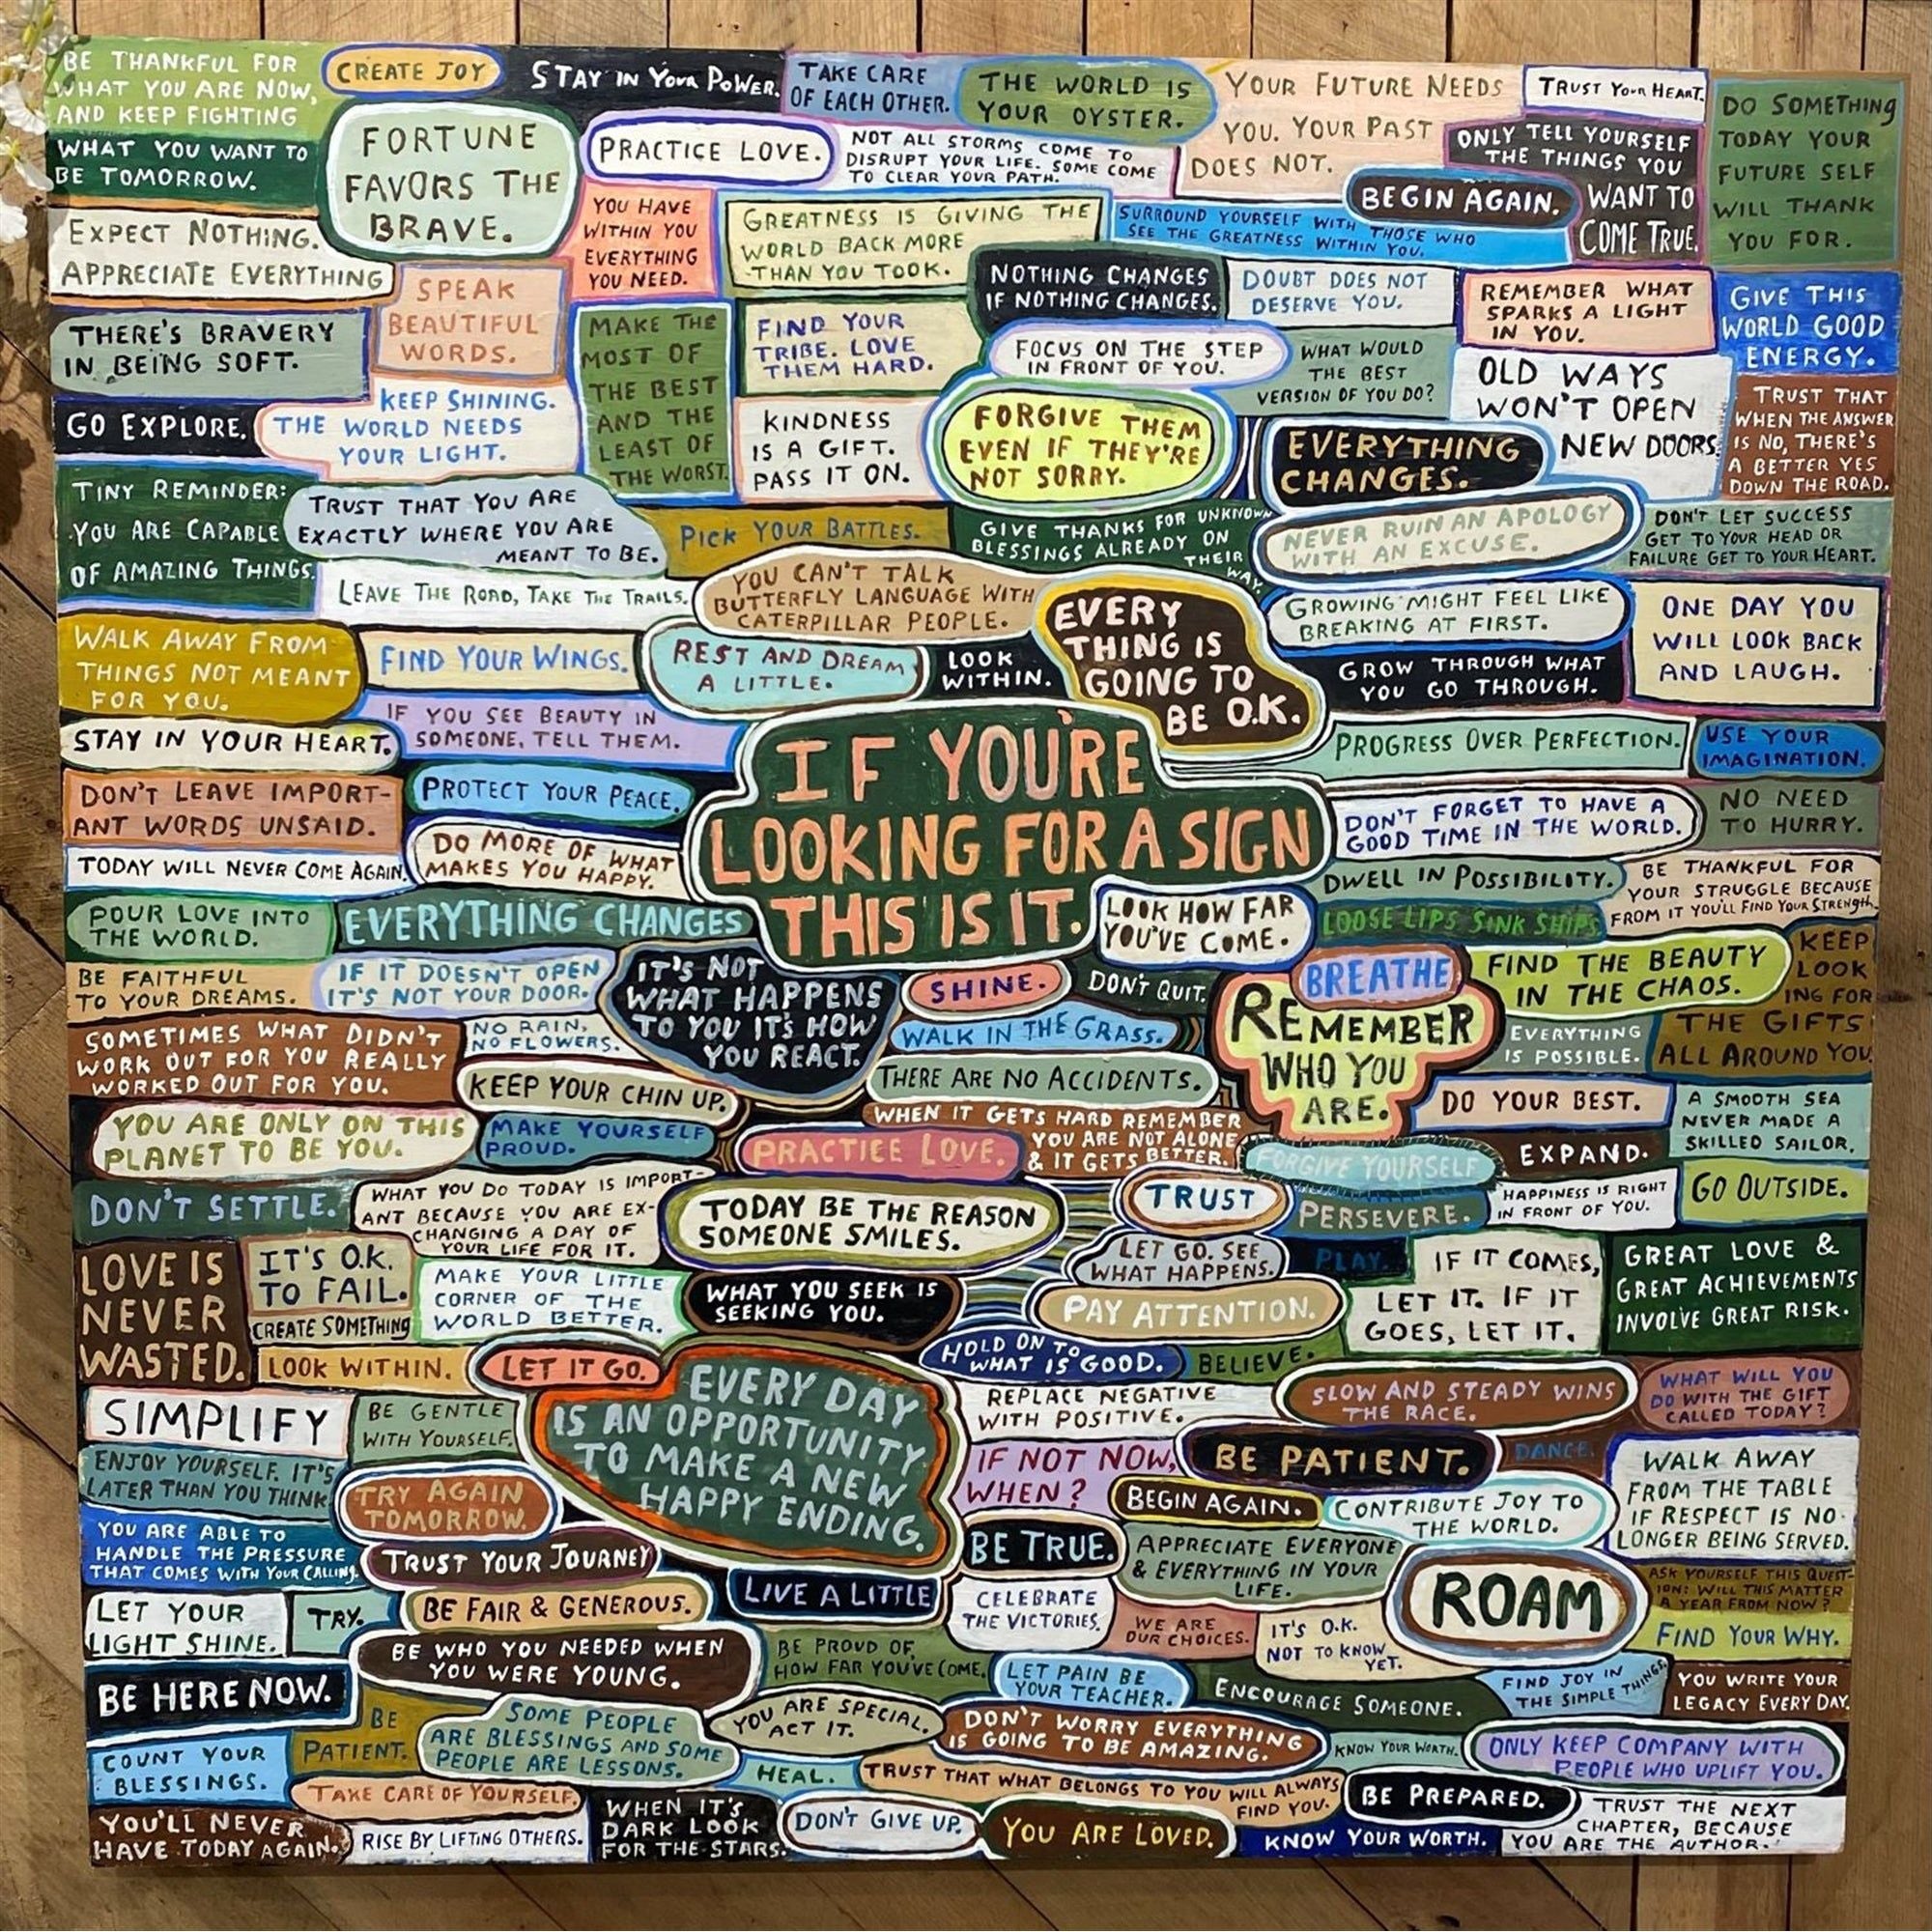 BE THANKFUL FOR
WHAT YOU ARE NOW,
AND KEEP FIGHTING
WHAT YOU WANT TO
BE TOMORROW.
CREATE JOY
STAY IN YOUR POWER.
TAKE CARE
OF EACH OTHER.
THE WORLD IS
YOUR OYSTER.
YOUR FUTURE NEEDS
YOU. YOUR PAST
DOES NOT.
TRUST YOUR HEART.
DO SOMETHING
TODAY YOUR
FUTURE SELF
WILL THANK
YOU FOR.
FORTUNE
FAVORS THE
BRAVE.
PRACTICE LOVE.
NOT ALL STORMS COME TO
DISRUPT YOUR LIFE. SOME COME
TO CLEAR YOUR PATH.
ONLY TELL YOURSELF
THE THINGS YOU
WANT TO
COME TRUE.
BEGIN AGAIN.
EXPECT NOTHING.
APPRECIATE EVERYTHING
YOU HAVE
WITHIN YOU
EVERYTHING
YOU NEED.
GREATNESS IS GIVING THE
WORLD BACK MORE
THAN YOU TOOK.
SURROUND YOURSELF WITH THOSE WHO
SEE THE GREATNESS WITHIN YOU.
SPEAK
BEAUTIFUL
WORDS.
NOTHING CHANGES
IF NOTHING CHANGES.
DOUBT DOES NOT
DESERVE YOU.
REMEMBER WHAT
SPARKS A LIGHT
IN YOU.
GIVE THIS
WORLD GOOD
ENERGY.
THERE'S BRAVERY
IN BEING SOFT.
MAKE THE
MOST OF
THE BEST
AND THE
LEAST OF
THE WORST.
FIND YOUR
TRIBE. LOVE
THEM HARD.
FOCUS ON THE STEP
IN FRONT OF YOU.
WHAT WOULD
THE BEST
VERSION OF YOU DO?
OLD WAYS
WON'T OPEN
NEW DOORS.
TRUST THAT
WHEN THE ANSWER
IS NO, THERE'S
A BETTER YES
DOWN THE ROAD.
GO EXPLORE.
KEEP SHINING.
THE WORLD NEEDS
YOUR LIGHT.
KINDNESS
IS A GIFT.
PASS IT ON.
FORGIVE THEM
EVEN IF THEY'RE
NOT SORRY.
EVERYTHING
CHANGES.
TINY REMINDER:
YOU ARE CAPABLE
OF AMAZING THINGS.
TRUST THAT YOU ARE
EXACTLY WHERE YOU ARE
MEANT TO BE.
PICK YOUR BATTLES.
GIVE THANKS FOR UNKNOWN
BLESSINGS ALREADY ON
THEIR
WAY.
NEVER RUIN AN APOLOGY
WITH AN EXCUSE.
DON'T LET SUCCESS
GET TO YOUR HEAD OR
FAILURE GET TO YOUR HEART.
LEAVE THE ROAD, TAKE THE TRAILS.
YOU CAN'T TALK
BUTTERFLY LANGUAGE WITH
CATERPILLAR PEOPLE.
EVERY
THING IS
GOING TO
BE O.K.
GROWING MIGHT FEEL LIKE
BREAKING AT FIRST.
ONE DAY YOU
WILL LOOK BACK
AND LAUGH.
WALK AWAY FROM
THINGS NOT MEANT
FOR YOU.
FIND YOUR WINGS.
REST AND DREAM
A LITTLE.
LOOK
WITHIN.
GROW THROUGH WHAT
YOU GO THROUGH.
IF YOU SEE BEAUTY IN
SOMEONE, TELL THEM.
STAY IN YOUR HEART.
IF YOU'RE
LOOKING FOR A SIGN
THIS IS IT.
PROGRESS OVER PERFECTION.
USE YOUR
IMAGINATION.
DON'T LEAVE IMPORT-
ANT WORDS UNSAID.
PROTECT YOUR PEACE.
DON'T FORGET TO HAVE A
GOOD TIME IN THE WORLD.
NO NEED
TO HURRY.
TODAY WILL NEVER COME AGAIN.
DO MORE OF WHAT
MAKES YOU HAPPY.
DWELL IN POSSIBILITY.
BE THANKFUL FOR
YOUR STRUGGLE BECAUSE
FROM IT YOU'LL FIND YOUR STRENGTH.
POUR LOVE INTO
THE WORLD.
EVERYTHING CHANGES
LOOK HOW FAR
YOU'VE COME.
LOOSE LIPS SINK SHIPS.
BE FAITHFUL
TO YOUR DREAMS.
IF IT DOESN'T OPEN
IT'S NOT YOUR DOOR.
IT'S NOT
WHAT HAPPENS
TO YOU IT'S HOW
YOU REACT.
SHINE.
DON'T QUIT.
BREATHE
FIND THE BEAUTY
IN THE CHAOS.
KEEP
LOOK
ING FOR
THE GIFTS
ALL AROUND YOU
SOMETIMES WHAT DIDN'T
WORK OUT FOR YOU REALLY
WORKED OUT FOR YOU.
NO RAIN,
NO FLOWERS.
WALK IN THE GRASS.
REMEMBER
WHO YOU
ARE.
EVERYTHING
IS POSSIBLE.
KEEP YOUR CHIN UP.
THERE ARE NO ACCIDENTS.
DO YOUR BEST.
A SMOOTH SEA
NEVER MADE A
SKILLED SAILOR.
YOU ARE ONLY ON THIS
PLANET TO BE YOU.
MAKE YOURSELF
PROUD.
PRACTICE LOVE.
WHEN IT GETS HARD REMEMBER
YOU ARE NOT ALONE
& IT GETS BETTER.
FORGIVE YOURSELF
EXPAND.
DON'T SETTLE.
WHAT YOU DO TODAY IS IMPORT-
ANT BECAUSE YOU ARE EX-
CHANGING A DAY OF
YOUR LIFE FOR IT.
TODAY BE THE REASON
SOMEONE SMILES.
TRUST
PERSEVERE.
HAPPINESS IS RIGHT
IN FRONT OF YOU.
GO OUTSIDE.
LOVE IS
NEVER
WASTED.
IT'S O.K.
TO FAIL.
CREATE SOMETHING
MAKE YOUR LITTLE
CORNER OF THE
WORLD BETTER.
WHAT YOU SEEK IS
SEEKING YOU.
LET GO. SEE
WHAT HAPPENS.
PLAY.
IF IT COMES,
LET IT. IF IT
GOES, LET IT.
GREAT LOVE &
GREAT ACHIEVEMENTS
INVOLVE GREAT RISK.
PAY ATTENTION.
LOOK WITHIN.
LET IT GO.
EVERY DAY
IS AN OPPORTUNITY
TO MAKE A NEW
HAPPY ENDING.
HOLD ON TO
WHAT IS GOOD.
BELIEVE.
SIMPLIFY
BE GENTLE
WITH YOURSELF.
REPLACE NEGATIVE
WITH POSITIVE.
SLOW AND STEADY WINS
THE RACE.
WHAT WILL YOU
DO WITH THE GIFT
CALLED TODAY?
ENJOY YOURSELF. IT'S
LATER THAN YOU THINK.
TRY AGAIN
TOMORROW.
IF NOT NOW,
WHEN?
BE PATIENT.
DANCE.
WALK AWAY
FROM THE TABLE
IF RESPECT IS NO
LONGER BEING SERVED.
BEGIN AGAIN.
CONTRIBUTE JOY TO
THE WORLD.
YOU ARE ABLE TO
HANDLE THE PRESSURE
THAT COMES WITH YOUR CALLING.
TRUST YOUR JOURNEY
BE TRUE.
APPRECIATE EVERYONE
& EVERYTHING IN YOUR
LIFE.
ROAM
ASK YOURSELF THIS QUEST-
ION: WILL THIS MATTER
A YEAR FROM NOW?
LET YOUR
LIGHT SHINE.
TRY.
BE FAIR & GENEROUS.
LIVE A LITTLE
CELEBRATE
THE VICTORIES.
WE ARE
OUR CHOICES.
IT'S O.K.
NOT TO KNOW
YET.
FIND YOUR WHY.
BE WHO YOU NEEDED WHEN
YOU WERE YOUNG.
BE PROUD OF
HOW FAR YOU'VE COME.
LET PAIN BE
YOUR TEACHER.
ENCOURAGE SOMEONE.
FIND JOY IN
THE SIMPLE THINGS.
YOU WRITE YOUR
LEGACY EVERY DAY.
BE HERE NOW.
BE
PATIENT.
SOME PEOPLE
ARE BLESSINGS AND SOME
PEOPLE ARE LESSONS.
YOU ARE SPECIAL.
ACT IT.
DON'T WORRY EVERYTHING
IS GOING TO BE AMAZING.
KNOW YOUR WORTH.
ONLY KEEP COMPANY WITH
PEOPLE WHO UPLIFT YOU.
COUNT YOUR
BLESSINGS.
TAKE CARE OF YOURSELF.
HEAL.
TRUST THAT WHAT BELONGS TO YOU WILL ALWAYS
FIND YOU.
BE PREPARED.
TRUST THE NEXT
CHAPTER, BECAUSE
YOU ARE THE AUTHOR.
YOU'LL NEVER
HAVE TODAY AGAIN.
RISE BY LIFTING OTHERS.
WHEN IT'S
DARK LOOK
FOR THE STARS.
DON'T GIVE UP.
YOU ARE LOVED.
KNOW YOUR WORTH.